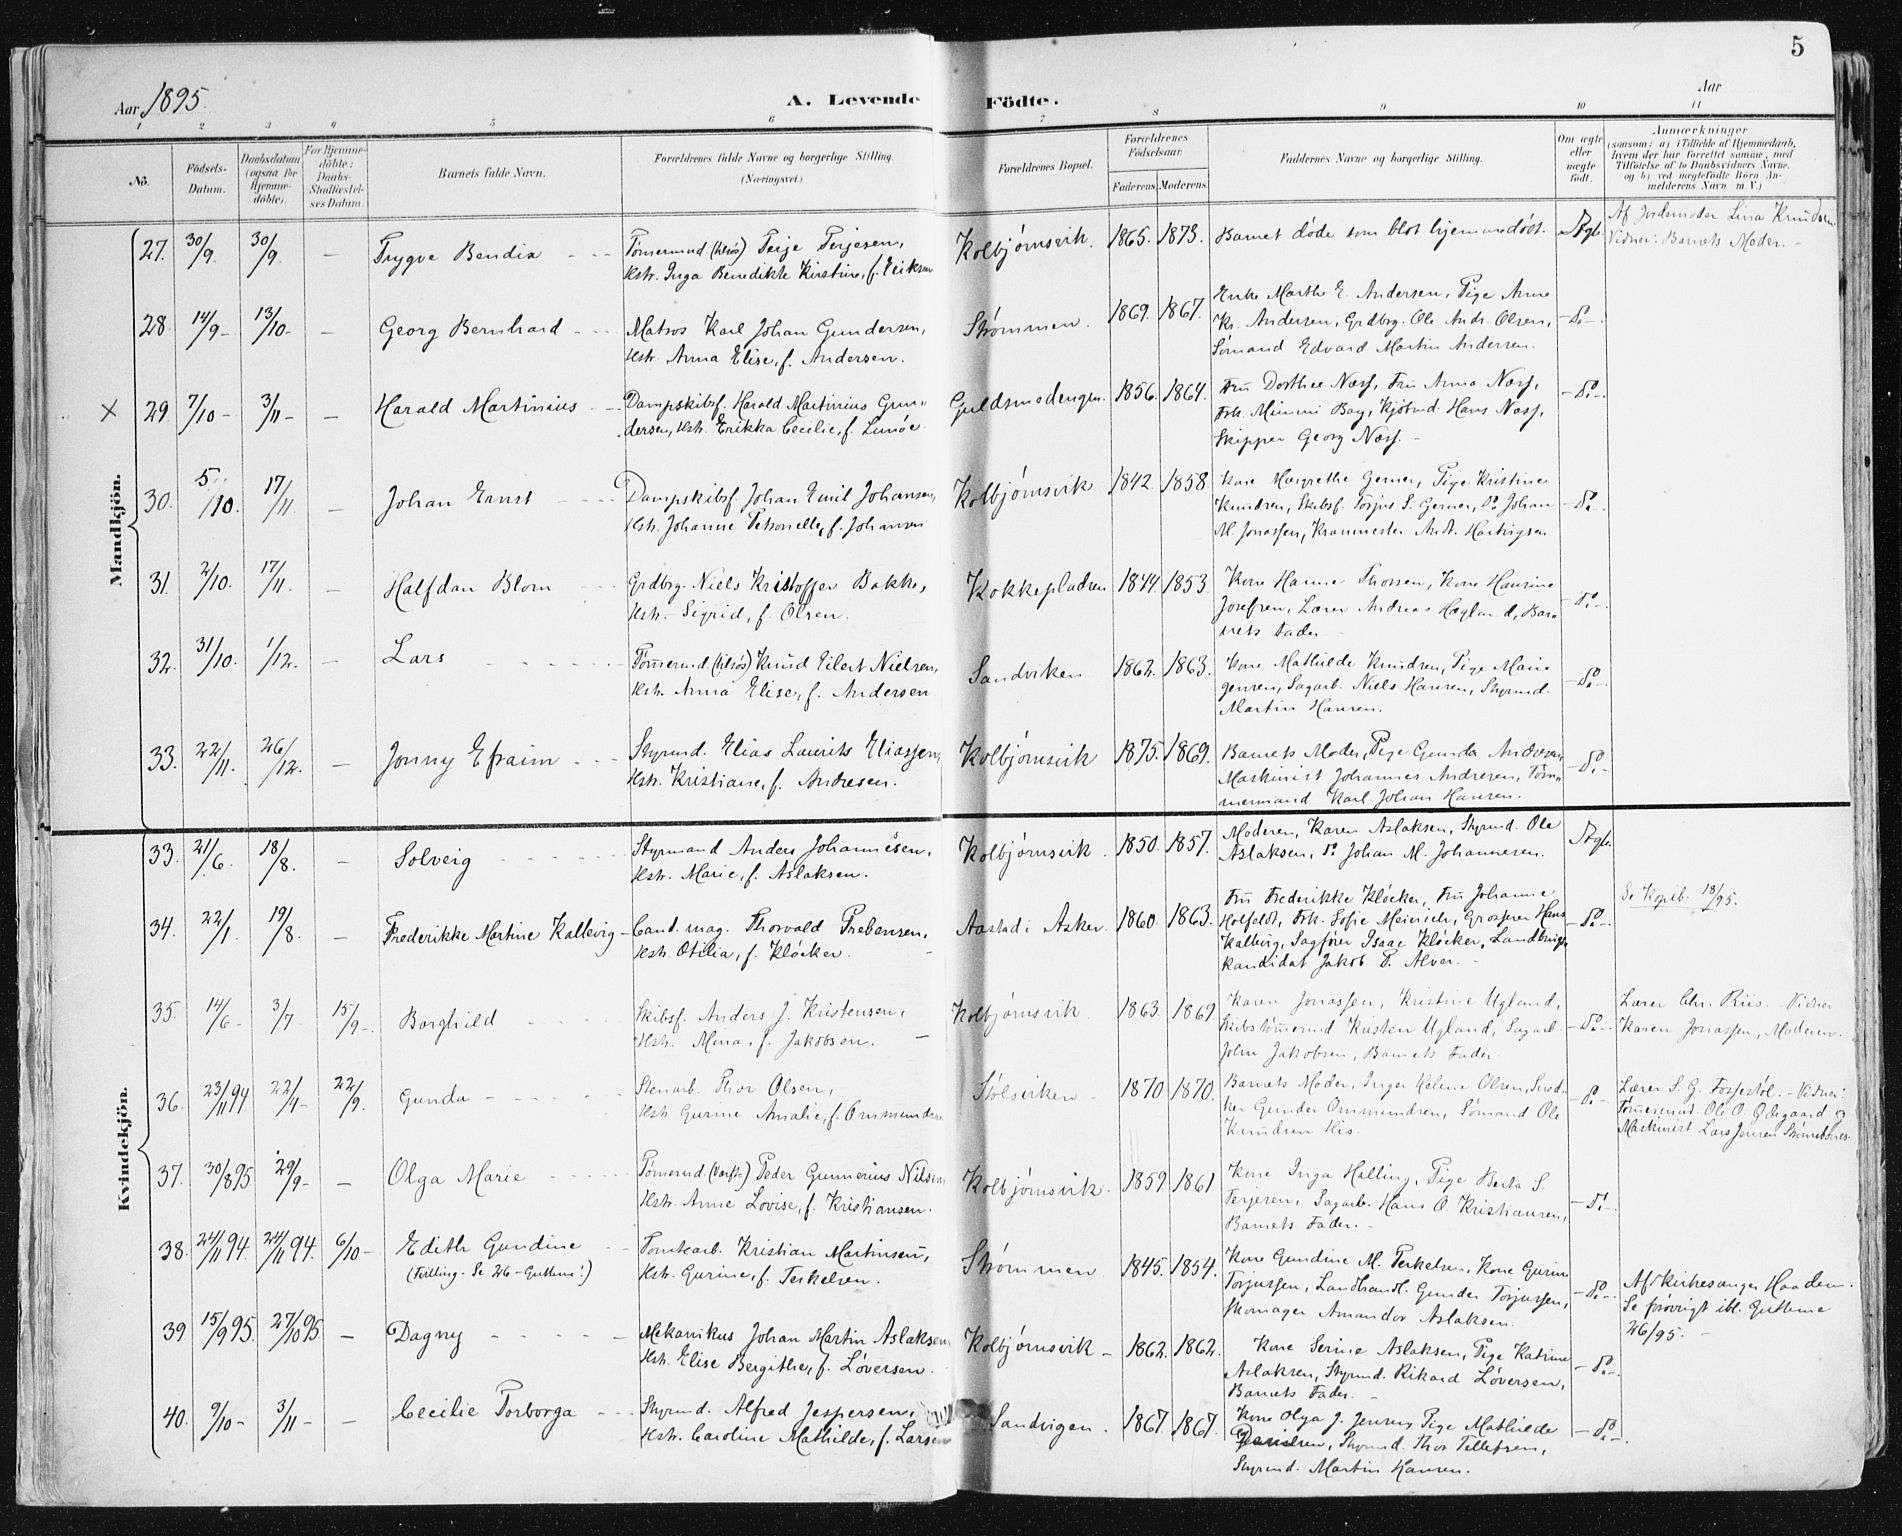 5
Aar 1895.
A. Levende Födte.
Aar
1 2 3 4 5 6 7 8 9 10 11
No.
Födsels-Datum.
Daabsdatum (ogsaa for Hjemme-döbte).
For Hjemme-döbte: Daabs-Stadfæstel-ses Datum.
Barnets fulde Navn.
Forældrenes fulde Navne og borgerlige Stilling. (Næringsvei.)
Forældrenes Bopæl.
Forældrenes Födselsaar. Faderens. Moderens.
Faddernes Navne og borgerlige Stilling.
Om ægte eller uægte födt.
Anmærkninger (saasom: a) i Tilfælde af Hjemmedaab, hvem der har forrettet samme, med Tilföielse af to Daabsvidners Navne, og b) ved uægtefödte Börn An-melderens Navn m. V.)
Mandkjön.
27. 30/9. 30/9. – Trygve Bendix
Tømermd (tilsøs) Terje Terjesen,
Hstr. Inga Benedikte Kirstine, f. Eriksen
Kolbjørnsvik. 1865. 1873.
Barnet døde som blot hjemmedøbt.
Ægte.
Af Jordemoder Lina Knudsen
Vidner: Barnets Moder. –
28. 14/9– 13/10– – Georg Bernhard
Matros Karl Johan Gundersen,
Hstr. Anna Elise, f. Andersen.
Strømmen. 1869. 1867.
Enke Marthe E. Andersen, Pige Anne
Kr. Andersen, Grdbrg. Ole Andr. Olsen,
Sømand Edvard Martin Andersen.
– do –
X 29. 7/10– 3/11– – Harald Martinius
Dampskibsf. Harald Martinius Gun-
dersen, Hstr. Erikka Cecilie, f. Lunøe.
Guldsmedengen. 1856. 1864.
Fru Dorthee Næss, Fru Anna Næss,
Frk. Mimmi Boy, Kjøbmd. Hans Næss,
Skipper Georg Næss. –
– do –
30. 5/10. 17/11. – Johan Ernst
Dampskibsf. Johan Emil Johansen,
Hstr. Johanne Petronelle, f. Johansen
Kolbjørnsvik 1842. 1858.
Kone Margrethe Gerner, Pige Kristine
Knudsen, Skibsf. Torjus S. Gerner, do Johan
M. Jonassen, Kranmester Andr. Hartvigsen
– do –
31. 2/10. 17/11. – Halfdan Blom
Grdbrg. Niels Kristoffer Bakke,
Hstr. – Sigrid, f. Olsen.
Kokkepladsen 1844. 1853.
Kone Hanne Thorsen, Kone Hansine
Josefsen, Lærer Andreas Hægland, Bar-
nets Fader –
– do –
32. 31/10. 1/12. – Lars
Tømermd (tilsøs) Knud Eilert Nielsen,
Hstr. Anna Elise, f. Andersen
Sandviken 1862. 1863.
Kone Mathilde Knudsen, Pige Marie
Jensen, Sagarb. Niels Hansen, Styrmd.
Martin Hansen.
– do –
33. 22/11. 26/12. – Jonny Efraim
Styrmd. Elias Laurits Eliassen,
Hstr. Kristiane, f. Andresen.
Kolbjørnsvik 1875. 1869.
Barnets Moder, Pige Gunda Andresen,
Maskinist Johannes Andresen, Tøm-
mermand Karl Johan Hansen.
– do –
Kvindekjön.
33. 21/6. 18/8. – Solveig
Styrmand Anders Johannesen,
Hstr. Marie, f. Aslaksen.
Kolbjørnsvik. 1850. 1857.
Moderen, Karen Aslaksen, Styrmd. Ole
Aslaksen, do Johan M. Johannesen.
Ægte.
34. 22/1. 19/8. – Frederikke Martine Kallevig –
Cand. mag. Thorvald Prebensen,
Hstr. Otilia, f. Kløcker.
Aastad i Asker 1860. 1863.
Fru Frederikke Kløcker, Fru Johanne
Holfeldt, Frk. Sofie Meinich, Grosserer Hans
Kallevig, Sagfører Isaac Kløcker, Landbrugs-
kandidat Jakob P. Alver. –
– do –
Se Kopib. 18/95.
35. 14/6– 3/7– 15/9–. Borghild
Skibsf. Anders J. Kristensen,
Hstr. Mina, f. Jakobsen. –
Kolbjørnsvik. 1863. 1869.
Karen Jonassen, Kristine Ugland,
Skibstømermd Kristen Ugland, Sagarb.
John Jakobsen, Barnets Fader.
– do –
Lærer Chr. Riis. – Vidner
Karen Jonassen, Moderen.
36. 23/11 94 22/4– 22/9. Gunda –
Stenarb. Thor Olsen,
Hstr. Gurine Amalie, f. Ommundsen
Sølsviken – 1870 1870.
Barnets Moder, Inger Helene Olsen, Sned-
ker Gunder Ommundsen, Sømand Ole
Knudsen His.
– do –
Lærer S. G. Fosjestøl. – Vidner:
Tømermd. Ole O. Ødegaard og
Maskinist Lars Jensen Strømsbones.
37. 30/8 95 29/9– – Olga Marie
Tømermd (Værft.) Peder Gunnerius Nilsen,
Hstr. Anne Lovise, f. Kristiansen.
Kolbjørnsvik. 1859 1861
Kone Inga Halling, Pige Berta S.
Terjesen, Sagarb. Hans O. Kristiansen,
Barnets Fader. –
– do –
38. 24/11 94. 24/11 94. 6/10– Edith Gundine
(Tvilling. Se 26 – Guttene!)
Tomtearb. Kristian Martinsen,
Hstr. Gurine, f. Terkelsen.
Strømmen 1845. 1854.
Kone Gundine M. Terkelsen, Kone Gurine
Torjussen, Landhandl. Gunder Torjussen,
Skomager Amandor Aslaksen.
– do –
Af Kirkesanger Haadem.
Se forøvrigt ibl. Guttene
26/95. –
39. 15/9 95. 27/10 95 – Dagny
Mekanikus Johan Martin Aslaksen,
Hstr. Elise Bergithe, f. Løversen.
Kolbjørnsvik – 1862. 1862.
Kone Serine Aslaksen, Pige Katrine
Aslaksen, Styrmd. Rikard Løversen,
Barnets Fader. –
– do –
40. 9/10– 3/11– – Cecilie Torborga
Styrmd. Alfred Jespersen,
Hstr. Caroline Mathilde, f. Larsen
Sandvigen. 1867. 1867.
Kone Olga J. Jensen, Pige Mathilde
Danielsen, Styrmd. Thor Tellefsen,
Styrmd. Martin Hansen.
– do –